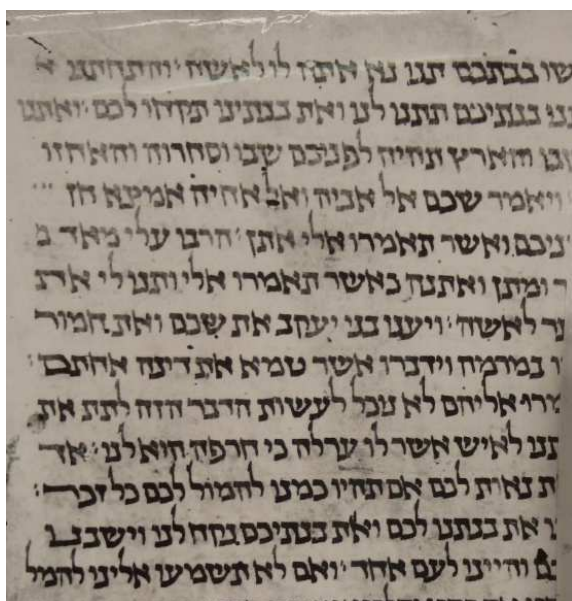 שו בבתכם תנו נא אתה לו לאשה׃ והתחתנו א
נו בנתיכם תתנו לנו ואת בנתינו תקחו לכם׃ ואתנו
שבו והארץ תהיה לפניכם שבו וסחרוה והאחזו
ויאמר שכם אל אביה ואל אחיה אמצא חן
ניכם ואשר תאמרו אלי אתן׃ הרבו עלי מאד מ
ר ומתן ואתנה כאשר תאמרו אלי ותנו לי את
ער לאשה׃ ויענו בני יעקב את שכם ואת חמור
ו במרמה וידברו אשר טמיא את דינה אחתם׃
מרו אליהם לא נוכל לעשות הדבר הזה לתת את
תנו לאיש אשר לו ערלה כי חרפה היא לנו׃ אך
ת נאות לכם אם תהיו כמנו להמול לכם כל זכר׃
ו את בנתנו לכם ואת בנתיכם נקח לנו וישבנו
ם והיינו לעם אחד׃ ואם לא תשמעו אלינו להמל